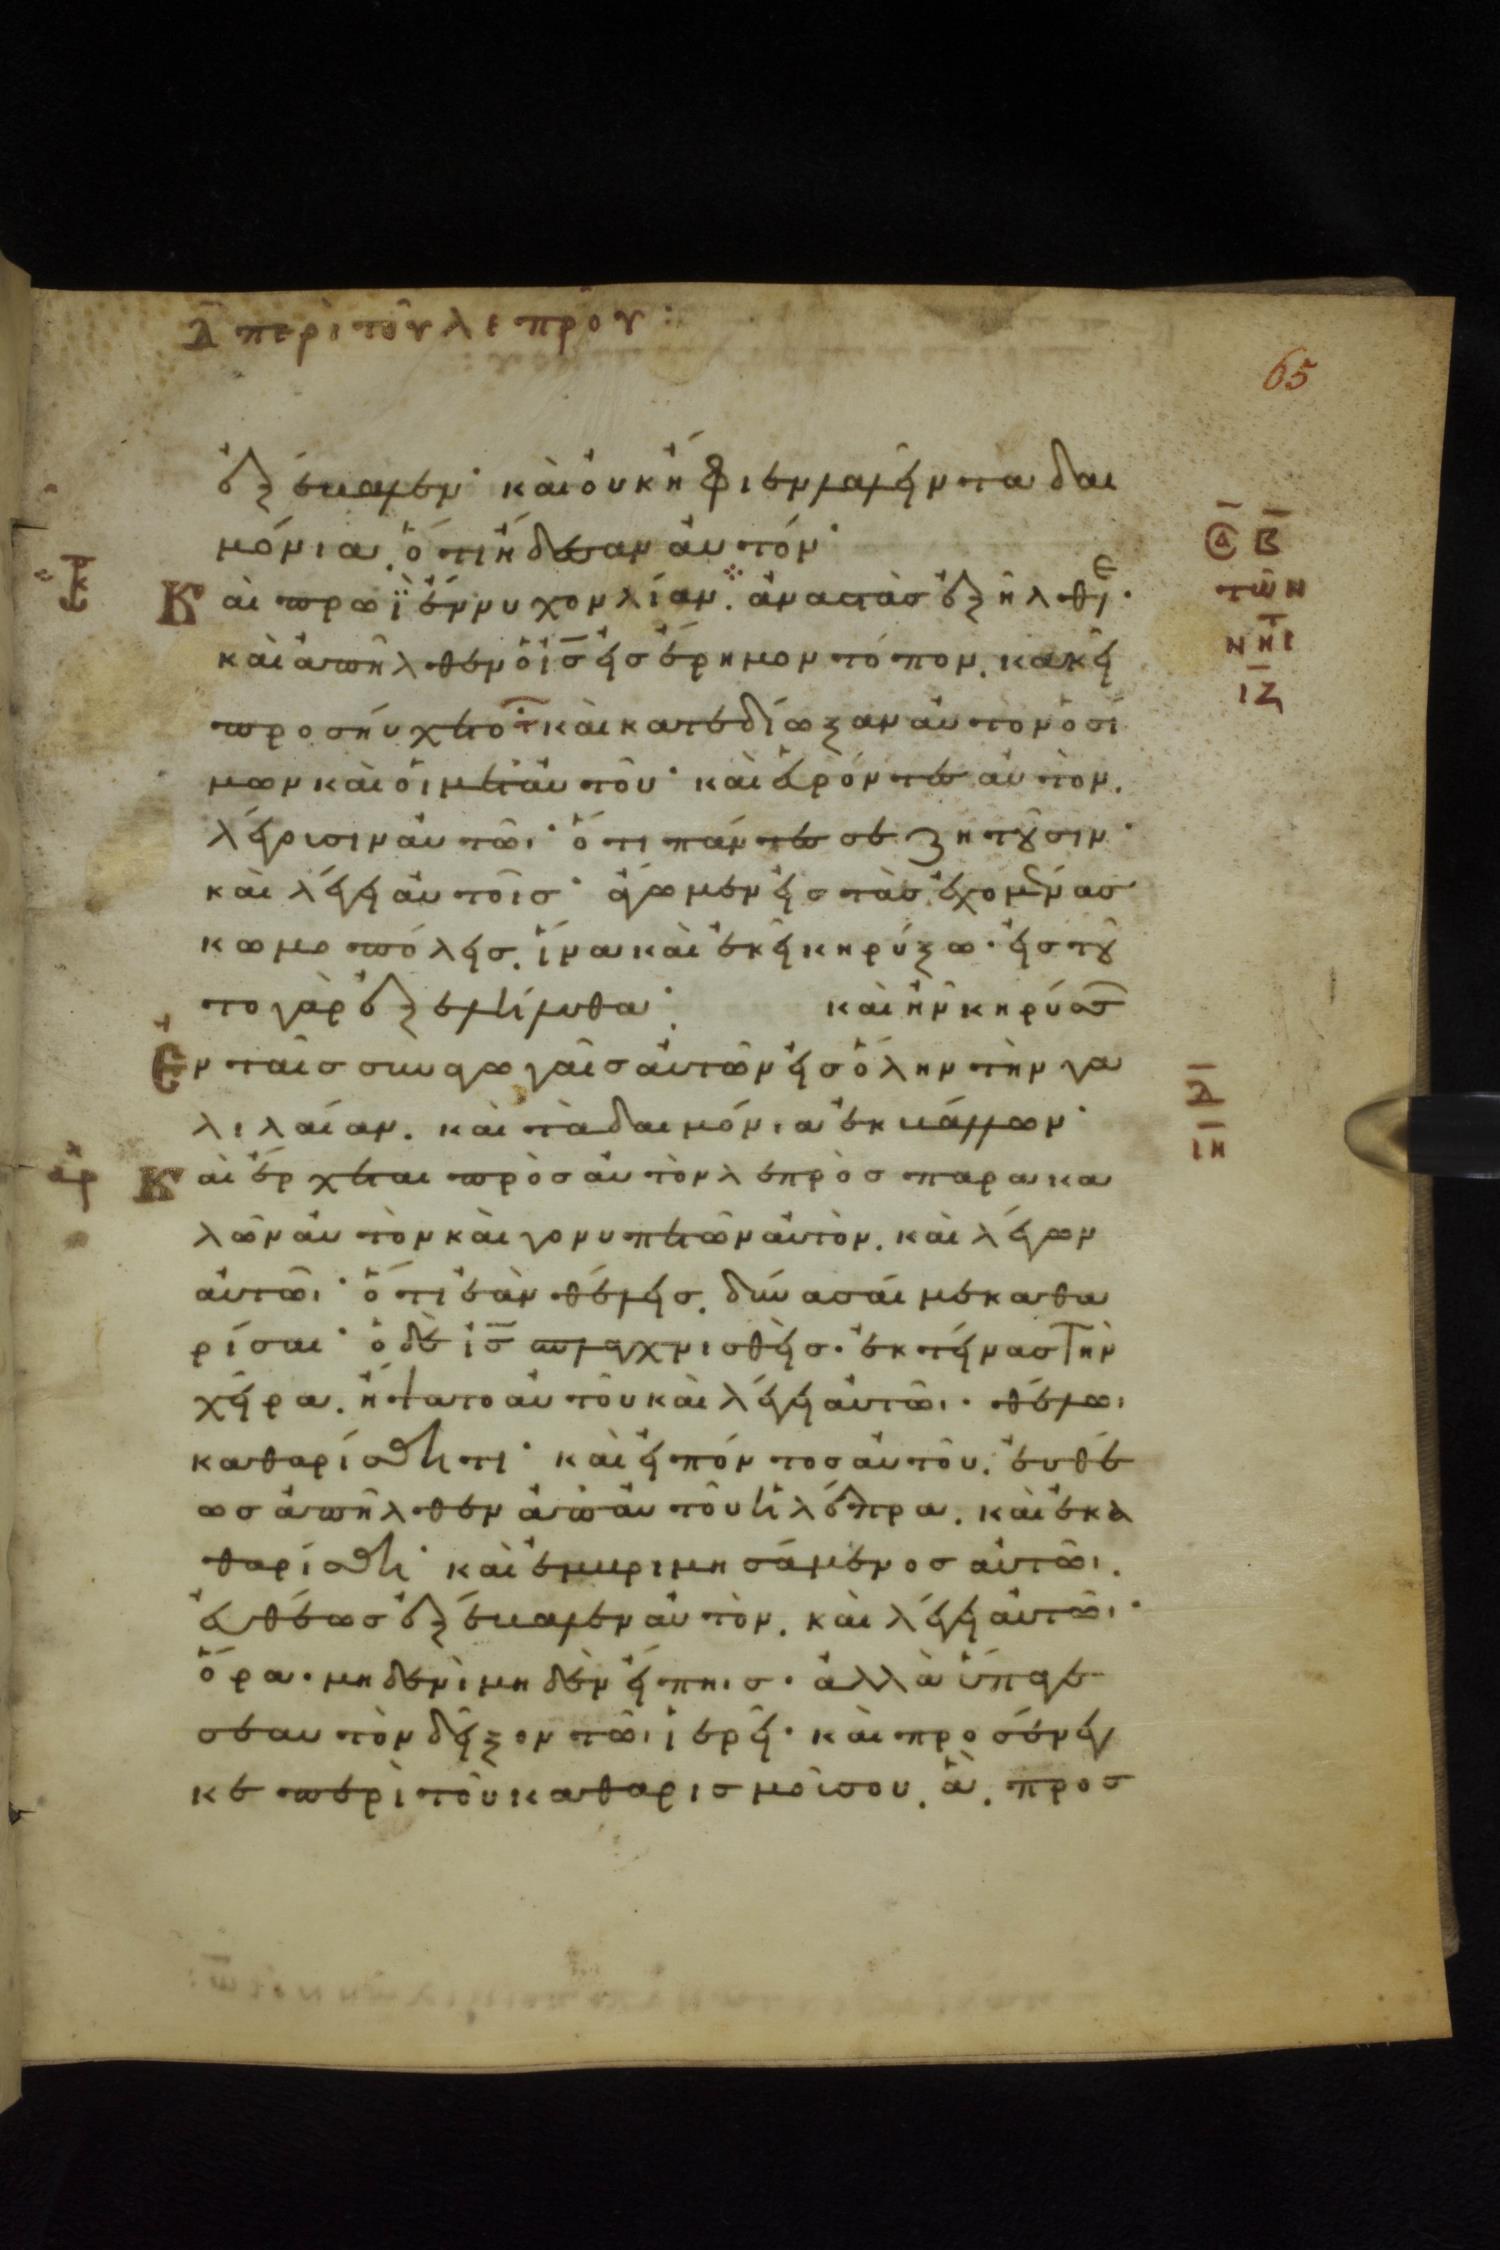 Δ περὶ τοῦ λεπροῦ :
65
ἐξέβαλεν· καὶ οὐκ ἤφιεν λαλεῖν τὰ δαι
μόνια, ὅτι ἤδεισαν αὐτόν·
Καὶ πρωῒ ἔννυχον λίαν. ἀναστὰς ἐξῆλθε·
καὶ ἀπῆλθεν ὁ ἰς εἰς ἔρημον τόπον. κακεῖ
προσηύχετο· καὶ κατεδίωξαν αὐτὸν ὁ σί
μων καὶ οἱ μετ αὐτοῦ· καὶ εὑρόντες αὐτὸν.
λέγουσιν αὐτῶι· ὅτι πάντες σε ζητοῦσιν·
καὶ λέγει αὐτοῖς· ἄγωμεν εἰς τὰς ἐχομένας
κωμοπόλεις. ἵνα καὶ ἐκεῖ κηρύξω· εἰς τοῦ
το γὰρ ἐξελήλυθα· καὶ ἦν κηρύσς
Ἐν ταῖς συναγωγαῖς αὐτῶν εἰς ὅλην τὴν γα
λιλαίαν. καὶ τὰ δαιμόνια ἐκβάλλων·
Καὶ ἔρχεται πρὸς αὐτὸν λεπρὸς παρακα
λῶν αὐτὸν καὶ γονυπετῶν αὐτὸν. καὶ λέγων
αὐτῶι· ὅτι ἐὰν θέλεις. δύνασαί με καθα
ρίσαι· ὁ δὲ ἰς σπλαγχνισθεὶς. ἐκτείνας τὴν
χεῖρα. ἥψατο αὐτοῦ καὶ λέγει αὐτῶι· θέλωι
καθαρίσθητι· καὶ εἰπόντος αὐτοῦ. εὐθέ
ως ἀπῆλθεν ἀπ αὐτοῦ ἡ λέπρα. καὶ ἐκα
θαρίσθη· καὶ ἐμβριμησάμενος αὐτῶι.
εὐθέως ἐξέβαλεν αὐτὸν. καὶ λέγει αὐτῶι·
ὅρα· μηδενὶ μηδὲν εἴπηις· ἀλλὰ ὕπαγε
σεαυτὸν δεῖξον τῶι ἱερεῖ· καὶ προσένεγ
κε περὶ τοῦ καθαρισμοῦ σου. ἃ. προσ
Β
τῶν
νηϊ
ΙΖ
Δ
ΙΗ